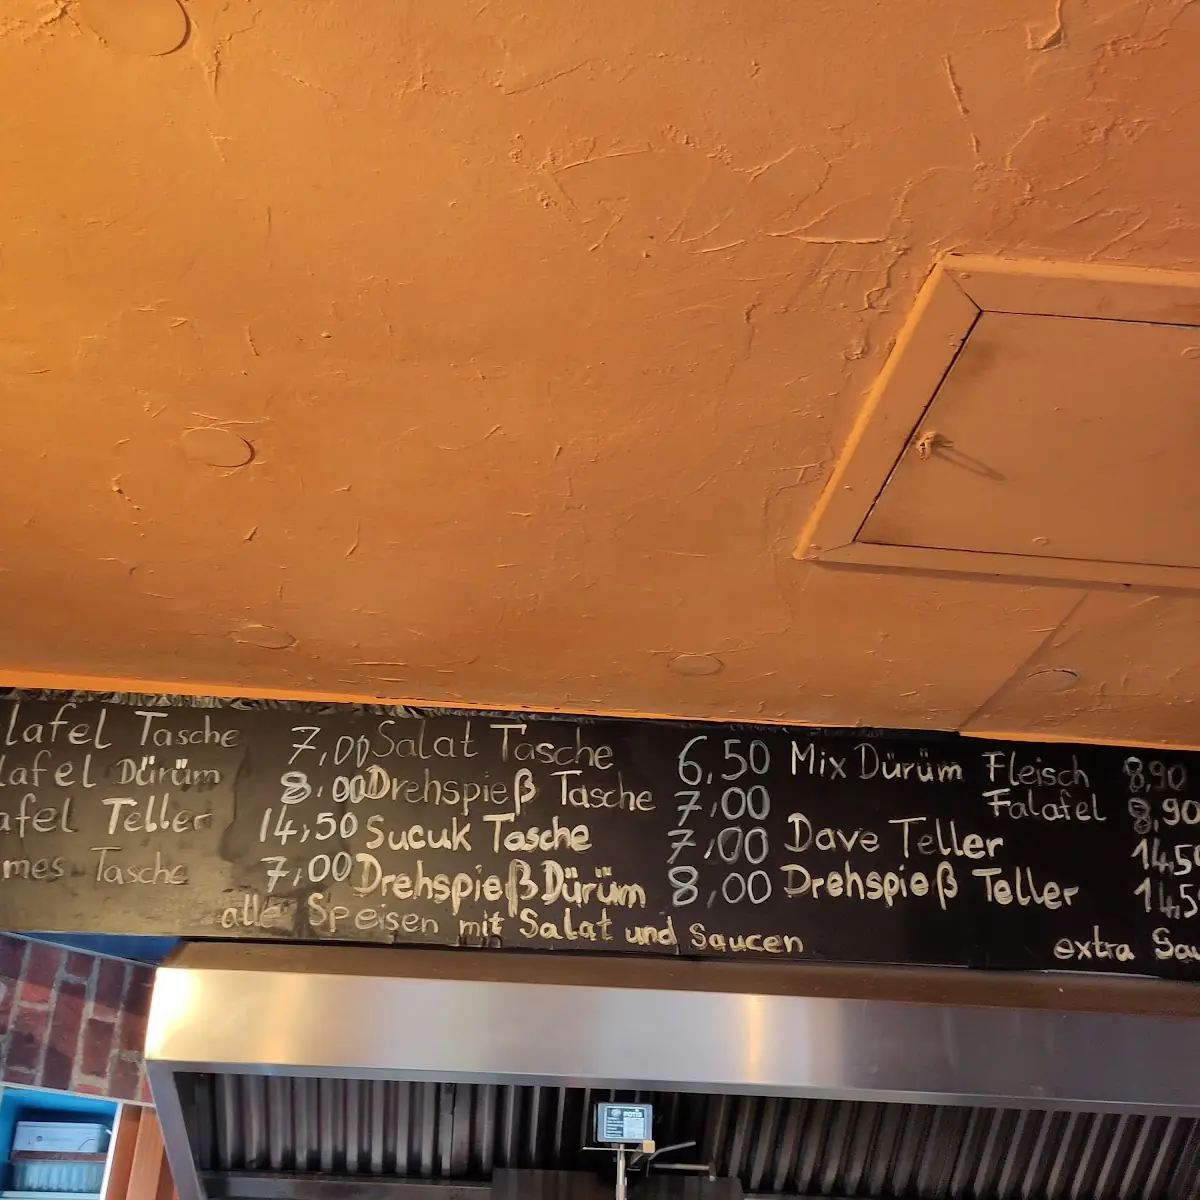 lafel Tasche 7,00 Salat Tasche 6,50 Mix Dürüm Fleisch 8,90
lafel Dürüm 8,00 Drehspieß Tasche 7,00 Falafel 8,90
afel Teller 14,50 Sucuk Tasche 7,00 Dave Teller 14,50
mes Tasche 7,00 Drehspieß Dürüm 8,00 Drehspieß Teller 14,5
alle Speisen mit Salat und Saucen extra Sau